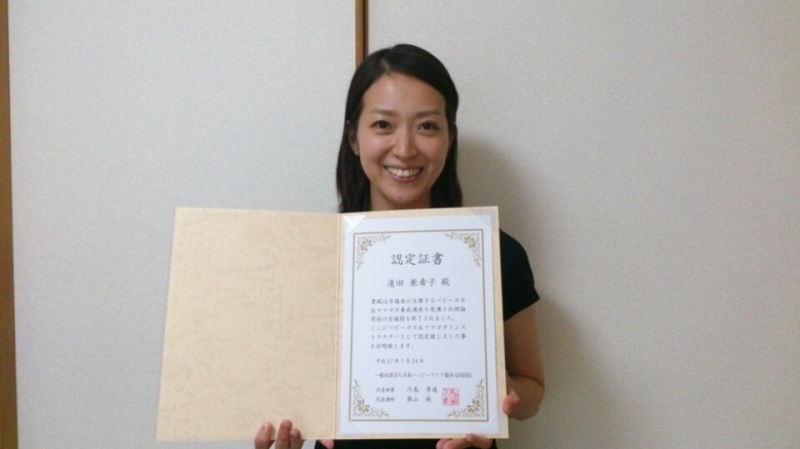 認定証書
濱田 亜希子 殿
貴殿は当協会が主催するベビーヨガ
&ママヨガ養成講座を受講され理論
実技の全過程を終了されました。
ここにベビーヨガ&ママヨガインス
トラクターとして認定致しました事
を証明致します。
平成27年7月24日
一般社団法人日本ハッピーライフ協会(JAHA)
代表理事 川島
代表講師 影山